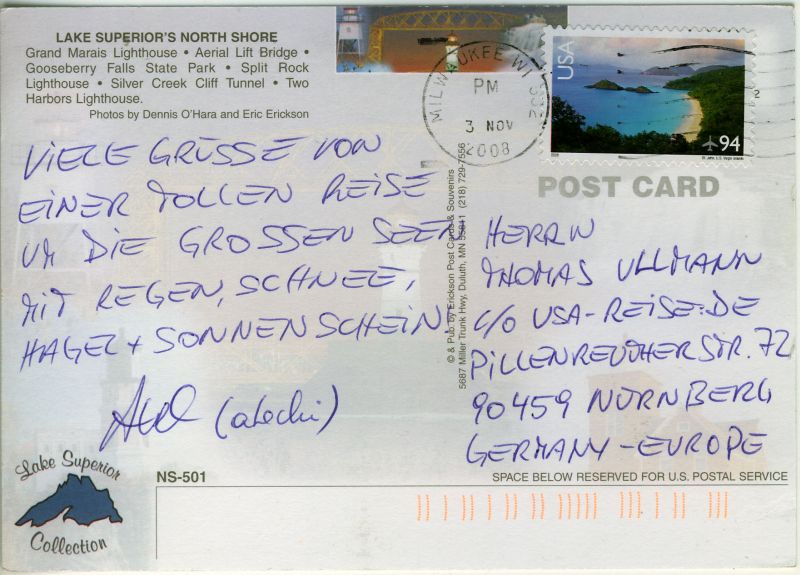 LAKE SUPERIOR'S NORTH SHORE
Grand Marais Lighthouse • Aerial Lift Bridge •
Gooseberry Falls State Park • Split Rock
Lighthouse • Silver Creek Cliff Tunnel • Two
Harbors Lighthouse.
Photos by Dennis O'Hara and Eric Erickson
MILWAUKEE WI 532
PM
3 NOV
2008
USA
94
POST CARD
VIELE GRÜSSE VON
EINER TOLLEN REISE
UM DIE GROSSEN SEEN
MIT REGEN, SCHNEE,
HAGEL + SONNENSCHEIN!
© & Pub by Erickson Post Cards & Souvenirs
5687 Miller Trunk Hwy, Duluth, MN 55811 (218) 729-7556
HERRN
THOMAS ULLMANN
C/O USA-REISE.DE
PILLENREUTHER STR. 72
90459 NÜRNBERG
GERMANY - EUROPE
Lake Superior
Collection
NS-501
SPACE BELOW RESERVED FOR U.S. POSTAL SERVICE